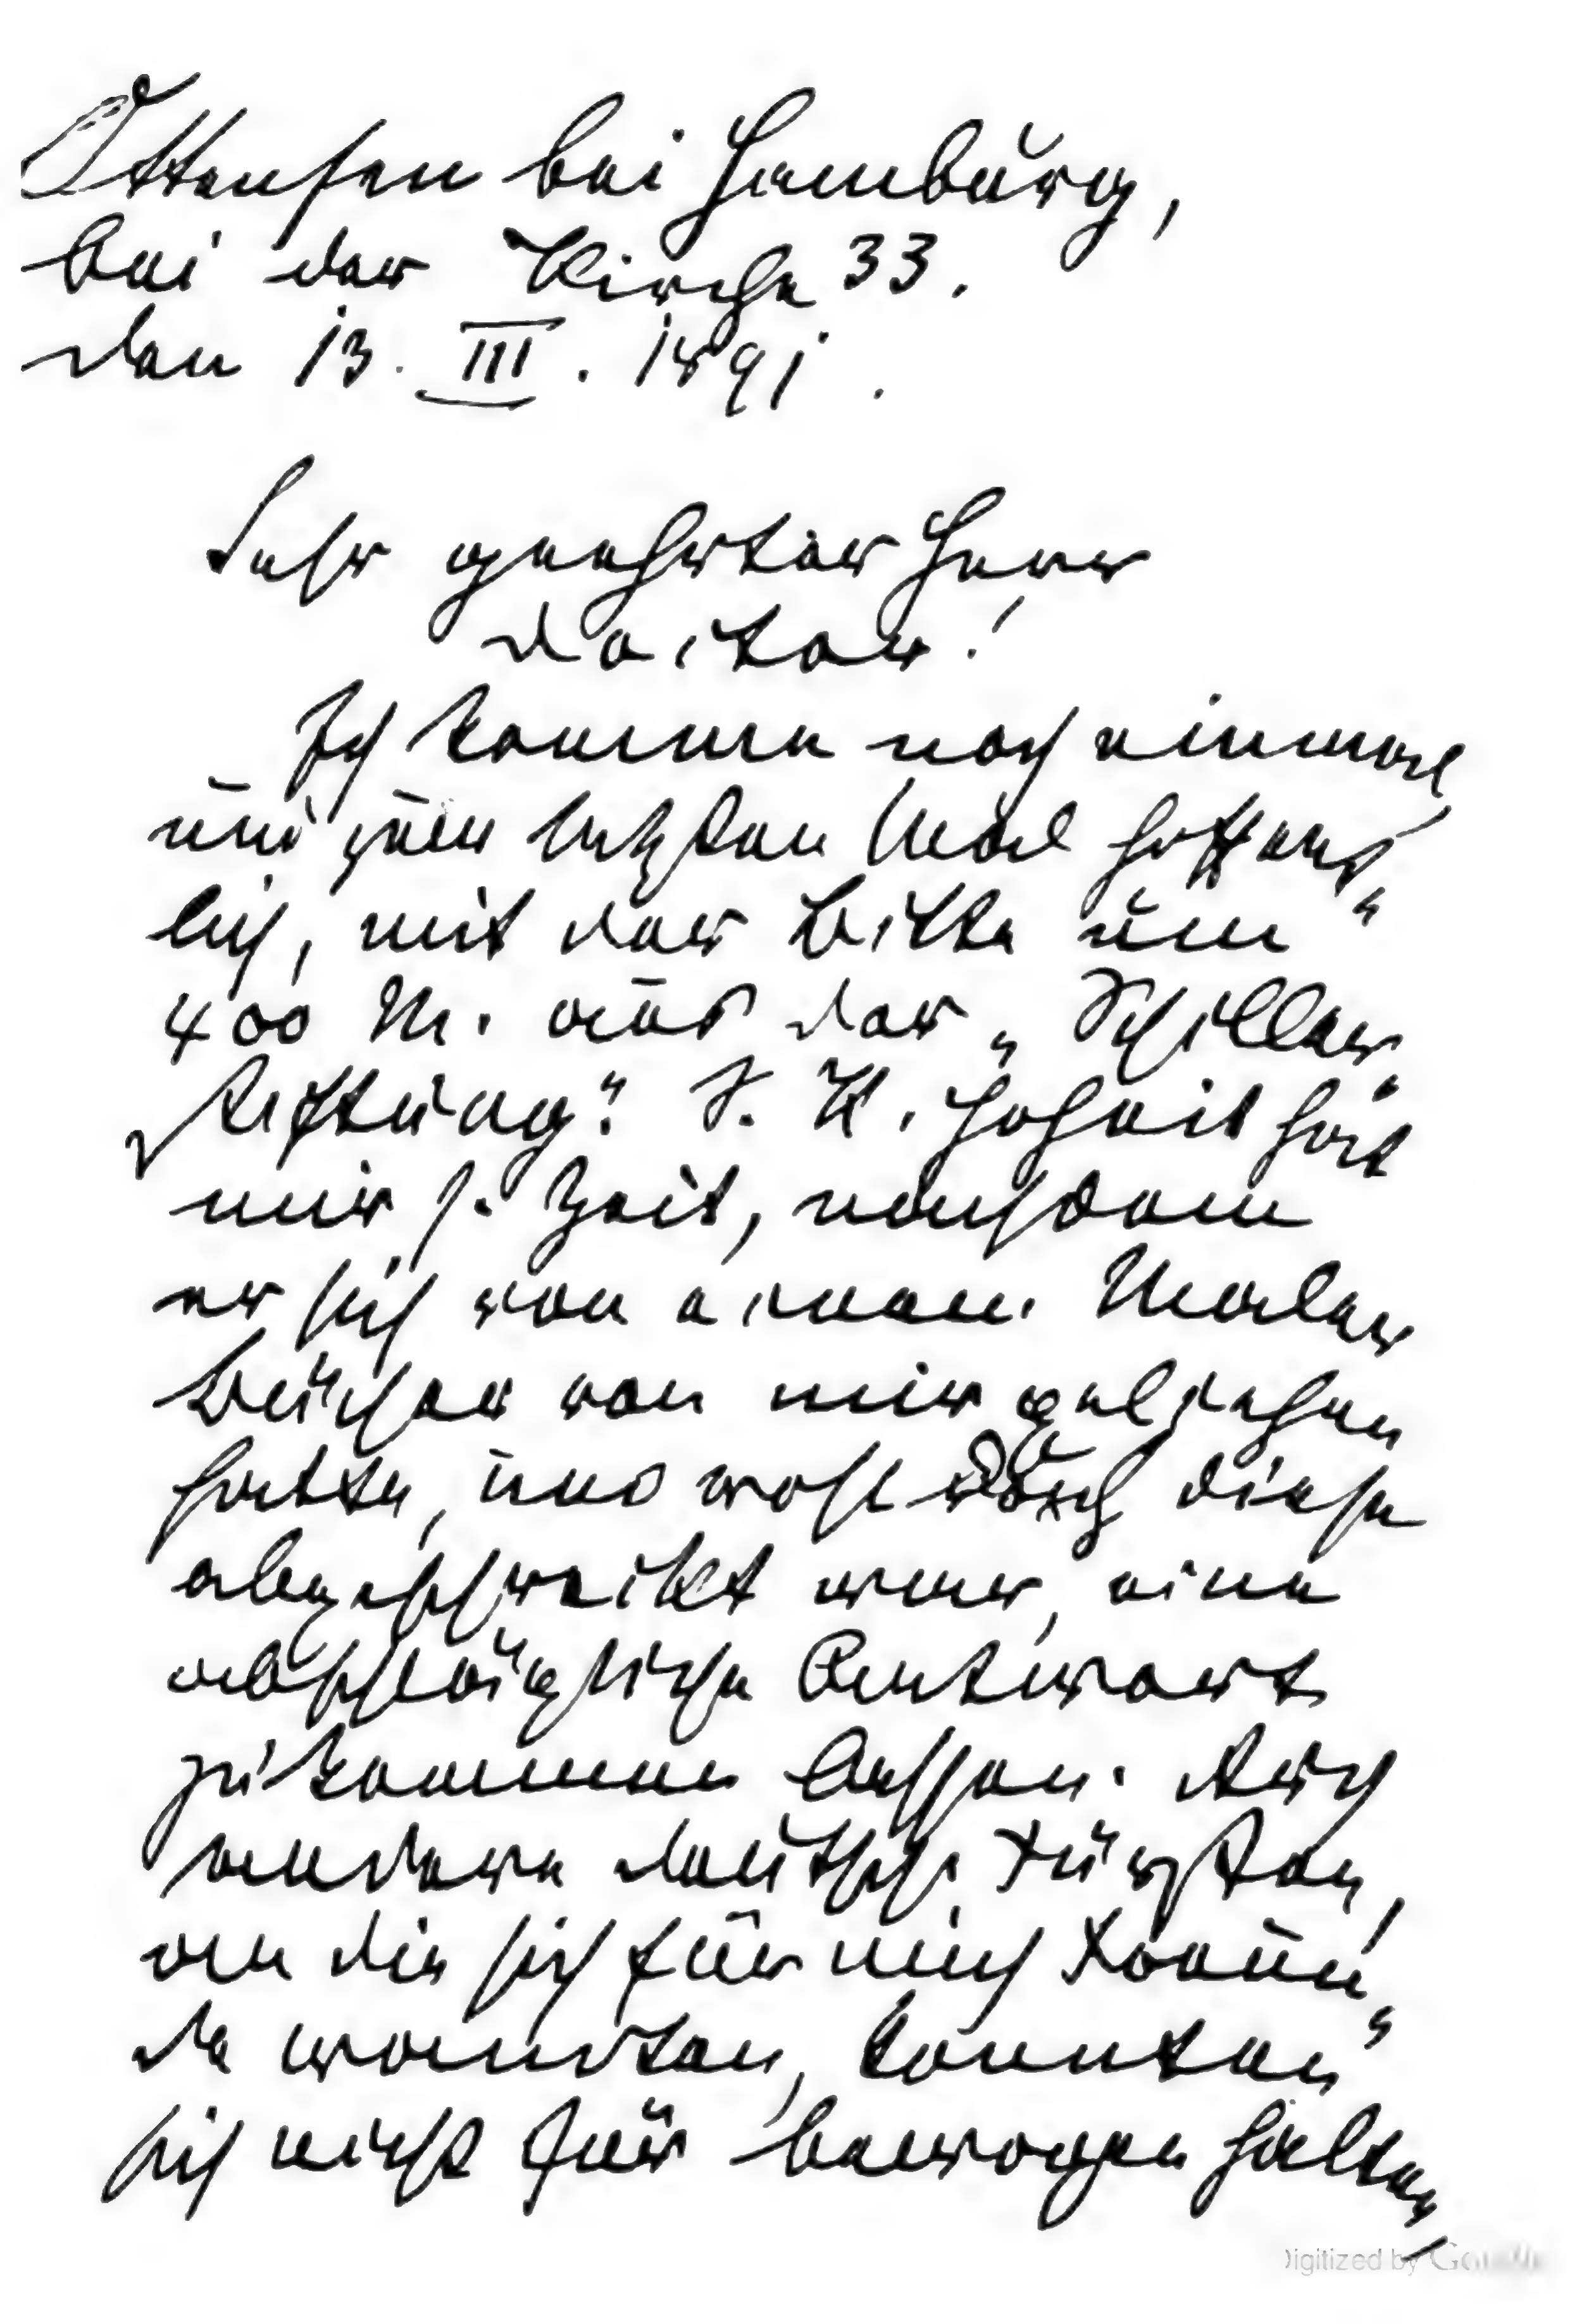 Ottensen bei Hamburg,
bei der Kirche 33.
den 13. III. 1891.
Sehr geehrter Herr
Doctor!
Ich komme noch einmal
und zum letzten Mal hoffent-
lich, mit der Bitte um
400 M. aus der „Schiller-
stiftung". S. K. Hoheit hat
mir s. Zeit, nachdem
er sich von einem Maler
Bücher von mir geliehen
hatte, und wohl durch diese
abgeschreckt war, eine
abschlägliche Antwort
zukommen lassen. Auch
andere deutsche Fürsten,
an die sich für mich Freun-
de wandten, konnten
sich nicht für bewogen halten,
Digitized by Google